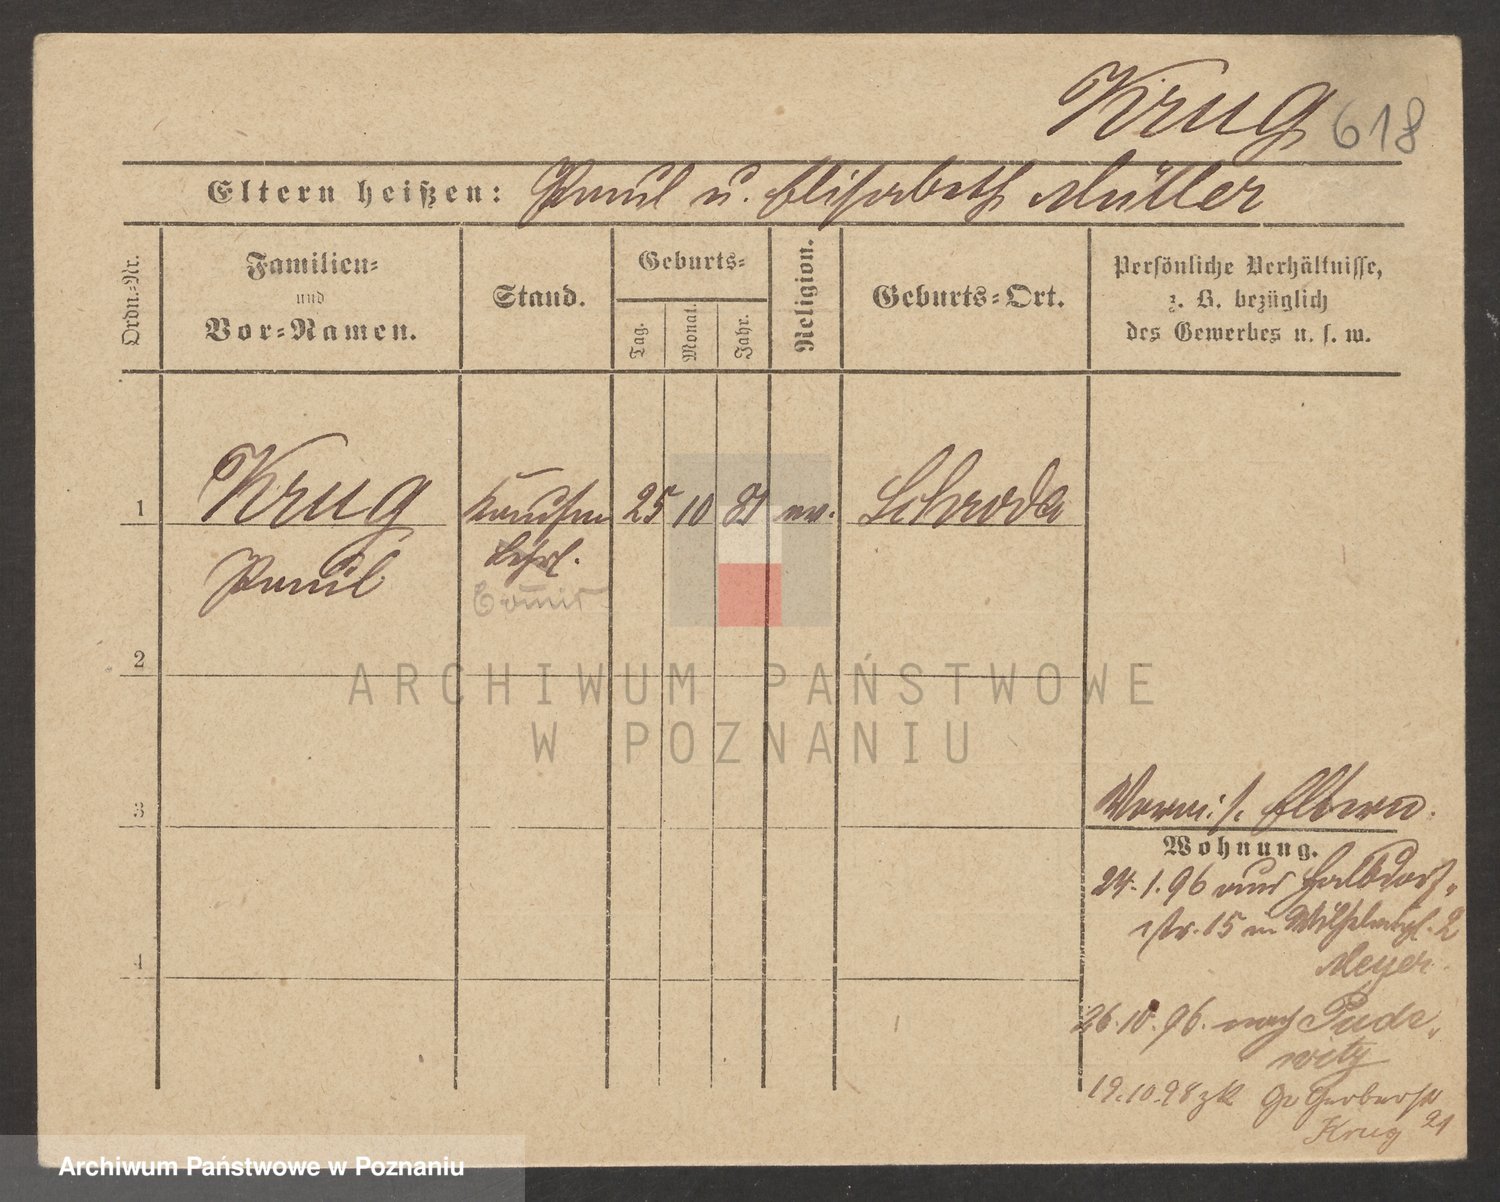 Krug 618
Eltern heißen: Paul u. Elisabeth Müller
Ordn.-Nr.
Familien-
und
Vor-Namen.
Stand.
Geburts-
Tag.
Monat.
Jahr.
Religion.
Geburts-Ort.
Persönliche Verhältnisse,
z. B. bezüglich
des Gewerbes u. s. w.
1 Krug Kaufm 25 10 81 ev. Schroda
Lehrl.
Paul
Commis
2
ARCHIWUM PAŃSTWOWE
W POZNANIU
3
s. Eltern.
Wohnung.
24.1.96 aus Halbdorf-
str. 15 n Wilhelmspl. 2
Meyer.
4
26.10.96. nach Pude-
witz
19.10.98 zk Gr Gerberstr
Krug 21
Archiwum Państwowe w Poznaniu